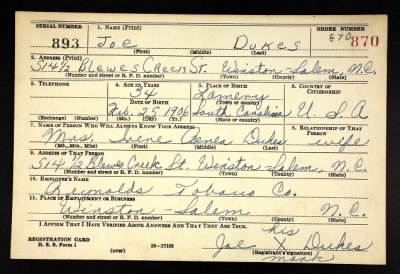 SERIAL NUMBER 1. NAME (Print) ORDER NUMBER
893 Joe Dukes 870 870
(First) (Middle) (Last)
2. ADDRESS (Print)
514½ Blewes Creek St. Winston-Salem, N.C.
(Number and street or R. F. D. number) (Town) (County) (State)
3. TELEPHONE 4. AGE IN YEARS 5. PLACE OF BIRTH 6. COUNTRY OF CITIZENSHIP
34
DATE OF BIRTH (Town or county)
Feb. 25, 1906 South Carolina U. S. A
(Exchange) (Number) (Mo.) (Day) (Yr.) (State or country)
7. NAME OF PERSON WHO WILL ALWAYS KNOW YOUR ADDRESS 8. RELATIONSHIP OF THAT PERSON
Mrs. Irene Dukes wife
(Mr., Mrs., Miss) (First) (Middle) (Last)
9. ADDRESS OF THAT PERSON
514½ Blewes Creek St. Winston-Salem, N. C.
(Number and street or R. F. D. number) (Town) (County) (State)
10. EMPLOYER'S NAME
Reynolds Tobacco Co.
11. PLACE OF EMPLOYMENT OR BUSINESS
Winston-Salem N. C.
(Number and street or R. F. D. number) (Town) (County) (State)
I AFFIRM THAT I HAVE VERIFIED ABOVE ANSWERS AND THAT THEY ARE TRUE.
his
REGISTRATION CARD Joe X Dukes
D. S. S. Form 1 (over) 16—17105 (Registrant's signature)
mark